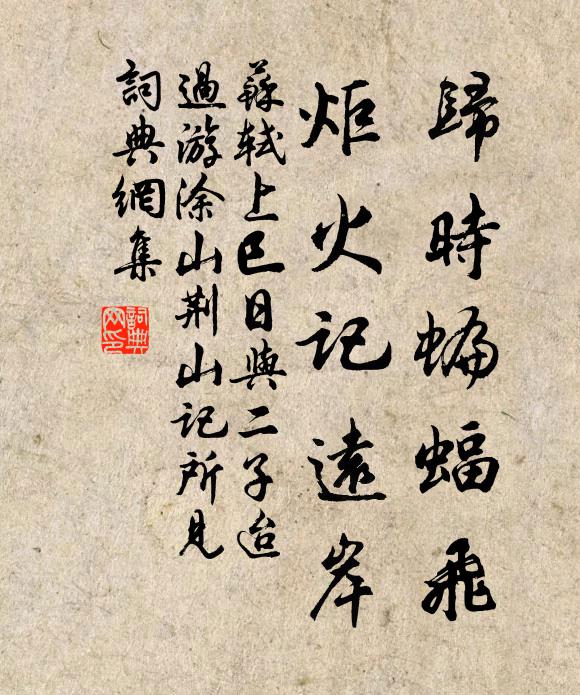 歸時蝙蝠飛
炬火記遠岸
蘇軾上巳日與二子迨
過游涂山荆山記所見
詞典網集
詞典網印